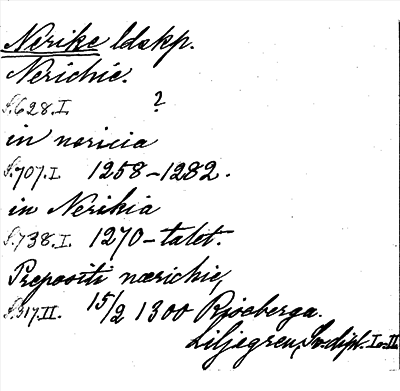 Nerike ldskp.
Nerichie.
S.628.I. ?
in nericia
S.707.I. 1258-1282.
in Nerikia
S.738.I. 1270-talet.
Prepositi nærichie,
S.317.II. 15/2 1300 Riseberga.
Liljegren, Sv. dipl. I o. II